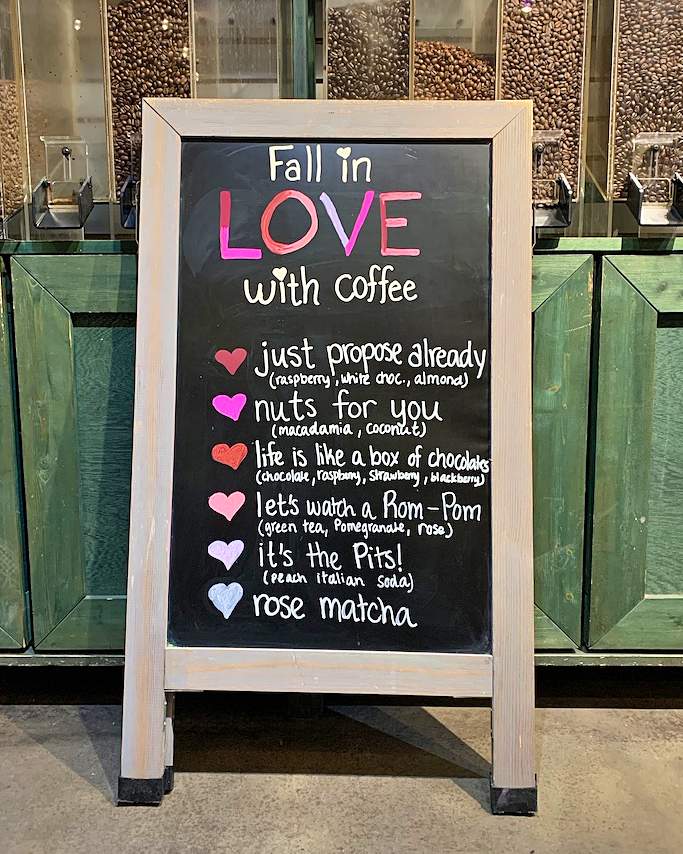 Fall in
LOVE
with coffee
just propose already
(raspberry, white choc., almond)
nuts for you
(macadamia, coconut)
life is like a box of chocolates
(chocolate, raspberry, strawberry, blackberry)
let's watch a Rom-Pom
(green tea, Pomegranate, rose)
it's the Pits!
(peach italian soda)
rose matcha